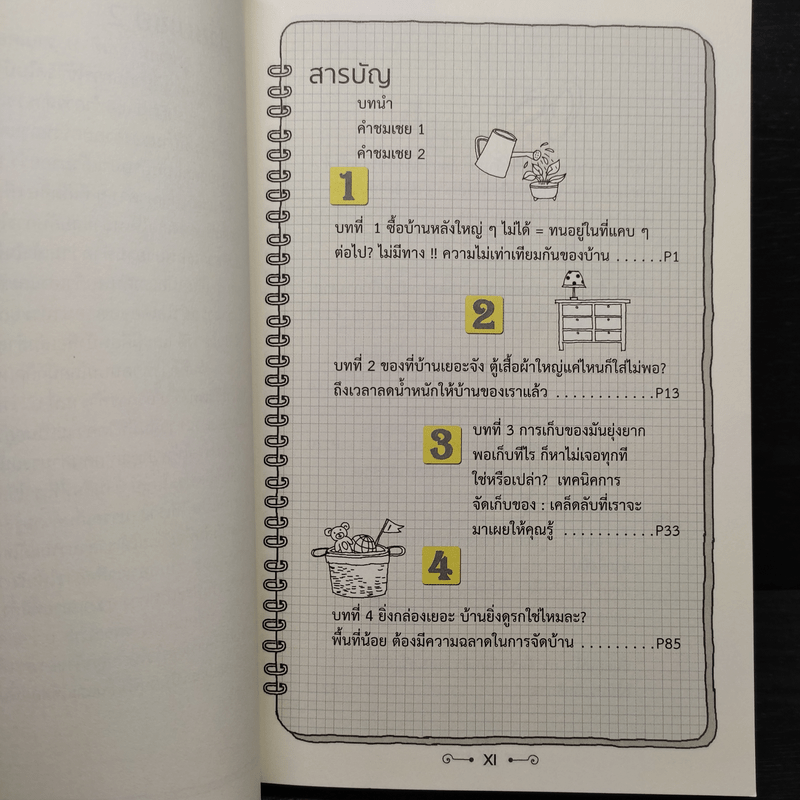 สารบัญ
บทนำ
คำชมเชย 1
คำชมเชย 2
1
บทที่ 1 ซื้อบ้านหลังใหญ่ ๆ ไม่ได้ = ทนอยู่ในที่แคบ ๆ
ต่อไป? ไม่มีทาง !! ความไม่เท่าเทียมกันของบ้าน ......P1
2
บทที่ 2 ของที่บ้านเยอะจัง ตู้เสื้อผ้าใหญ่แค่ไหนก็ใส่ไม่พอ?
ถึงเวลาลดน้ำหนักให้บ้านของเราแล้ว ............P13
3
บทที่ 3 การเก็บของมันยุ่งยาก
พอเก็บทีไร ก็หาไม่เจอทุกที
ใช่หรือเปล่า? เทคนิคการ
จัดเก็บของ : เคล็ดลับที่เราจะ
มาเผยให้คุณรู้ ...........P33
4
บทที่ 4 ยิ่งกล่องเยอะ บ้านยิ่งดูรกใช่ไหมละ?
พื้นที่น้อย ต้องมีความฉลาดในการจัดบ้าน .........P85
XI